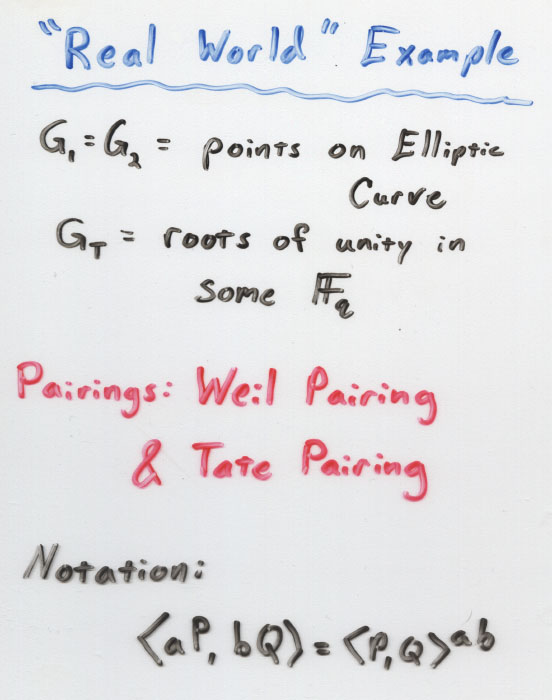 "Real World" Example
G₁ = G₂ = points on Elliptic
Curve
G_T = roots of unity in
some 𝔽_q
Pairings: Weil Pairing
& Tate Pairing
Notation:
⟨aP, bQ⟩ = ⟨P,Q⟩^ab